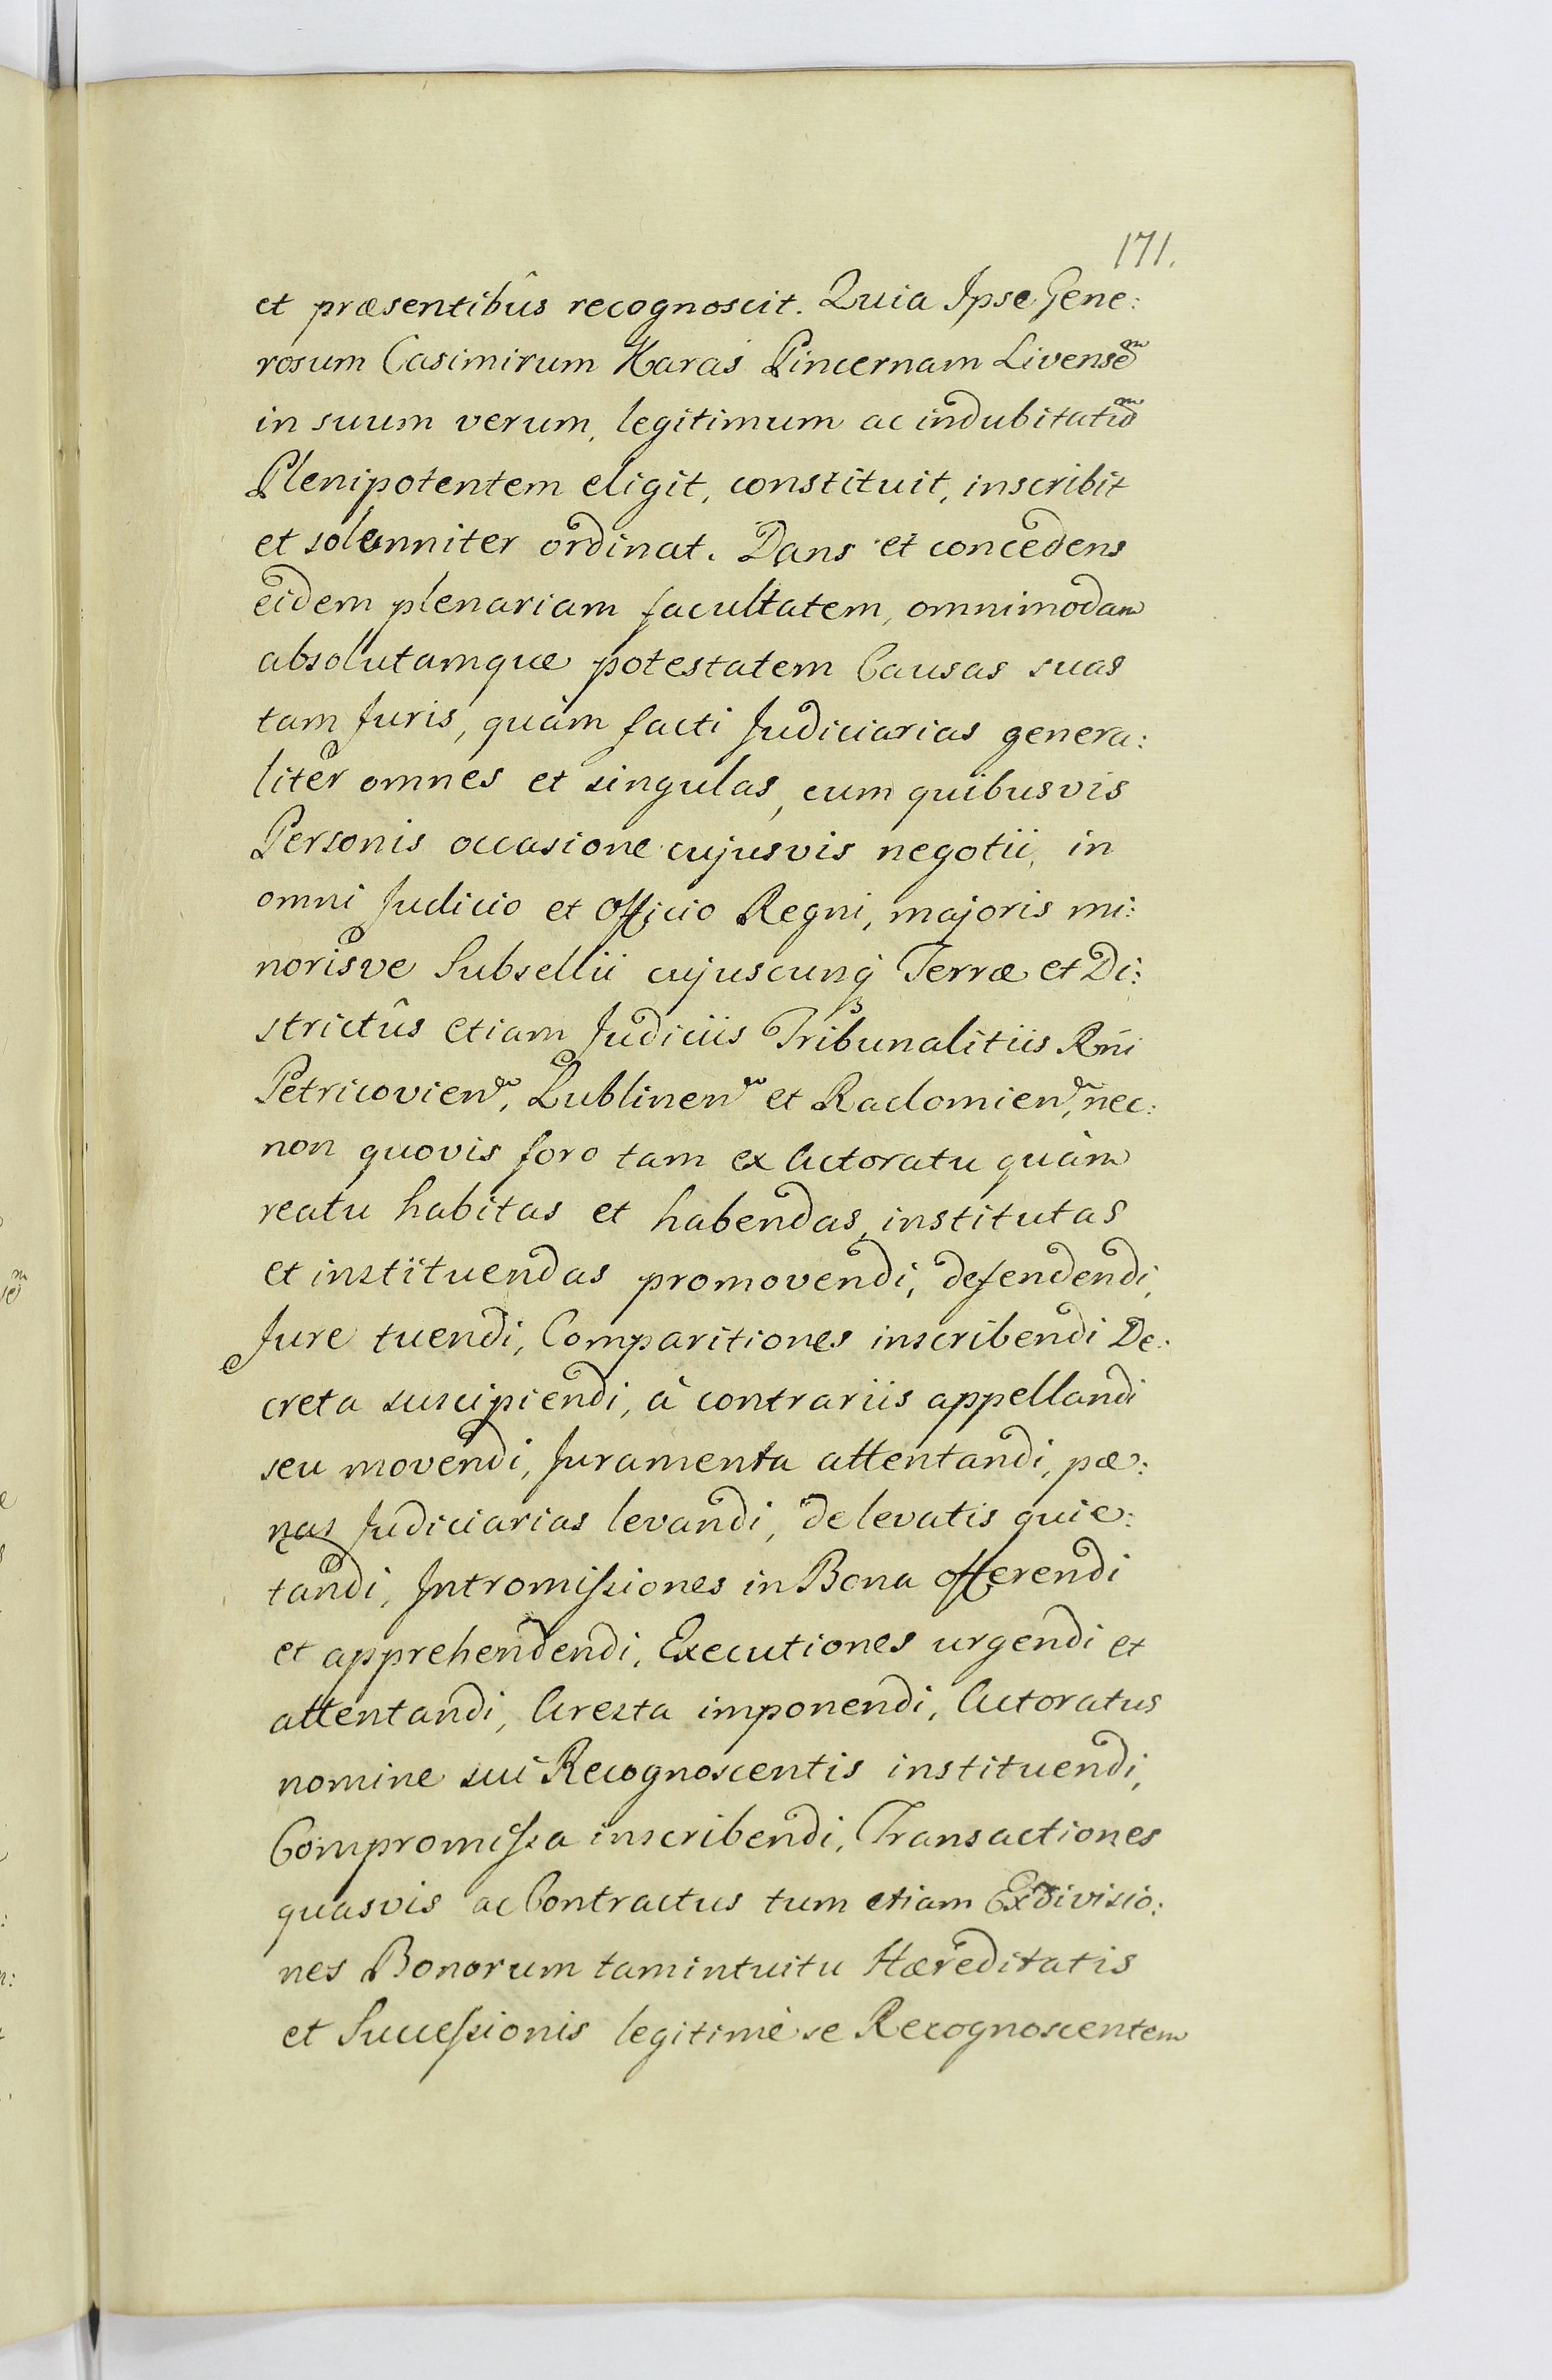 171.
et præsentibûs recognoscit. Quia Ipse Gene:
rosum Casimirum Karaś Pincernam Livensem
in suum verum, legitimum ac indubitatum
Plenipotentem eligit, constituit, inscribit
et solenniter ordinat. Dans et concedens
eidem plenariam facultatem, omnimodam
absolutamque potestatem Causas suas
tam Juris, quàm facti Judiciarias genera:
liter omnes et singulas, cum quibusvis
Personis occasione cujusvis negotii, in
omni Judicio et Officio Regni, majoris mi:
norisve Subsellii cujuscunq́ Terræ et Di:
strictûs etiam Judiciis Tribunalitiis Rnĩ
Petricovien, Lublinen et Radomien, nec:
non quovis foro tam ex Actoratu quàm
reatu habitas et habendas, institutas
et instituendas promovendi, defendendi,
Jure tuendi, Comparitiones inscribendi De:
creta suscipiendi, à contrariis appellandi
seu movendi, Juramenta attentandi, pæ:
nas Judiciarias levandi, de levatis quie:
tandi, Intromissiones in Bona offerendi
et apprehendendi, Executiones urgendi et
attentandi, Aresta imponendi, Actoratus
nomine sui Recognoscentis instituendi,
Compromissa inscribendi, Transactiones
quasvis ac Contractus tum etiam Exdivisio:
nes Bonorum tam intuitu Hæreditatis
et Successionis legitimè se Recognoscentem